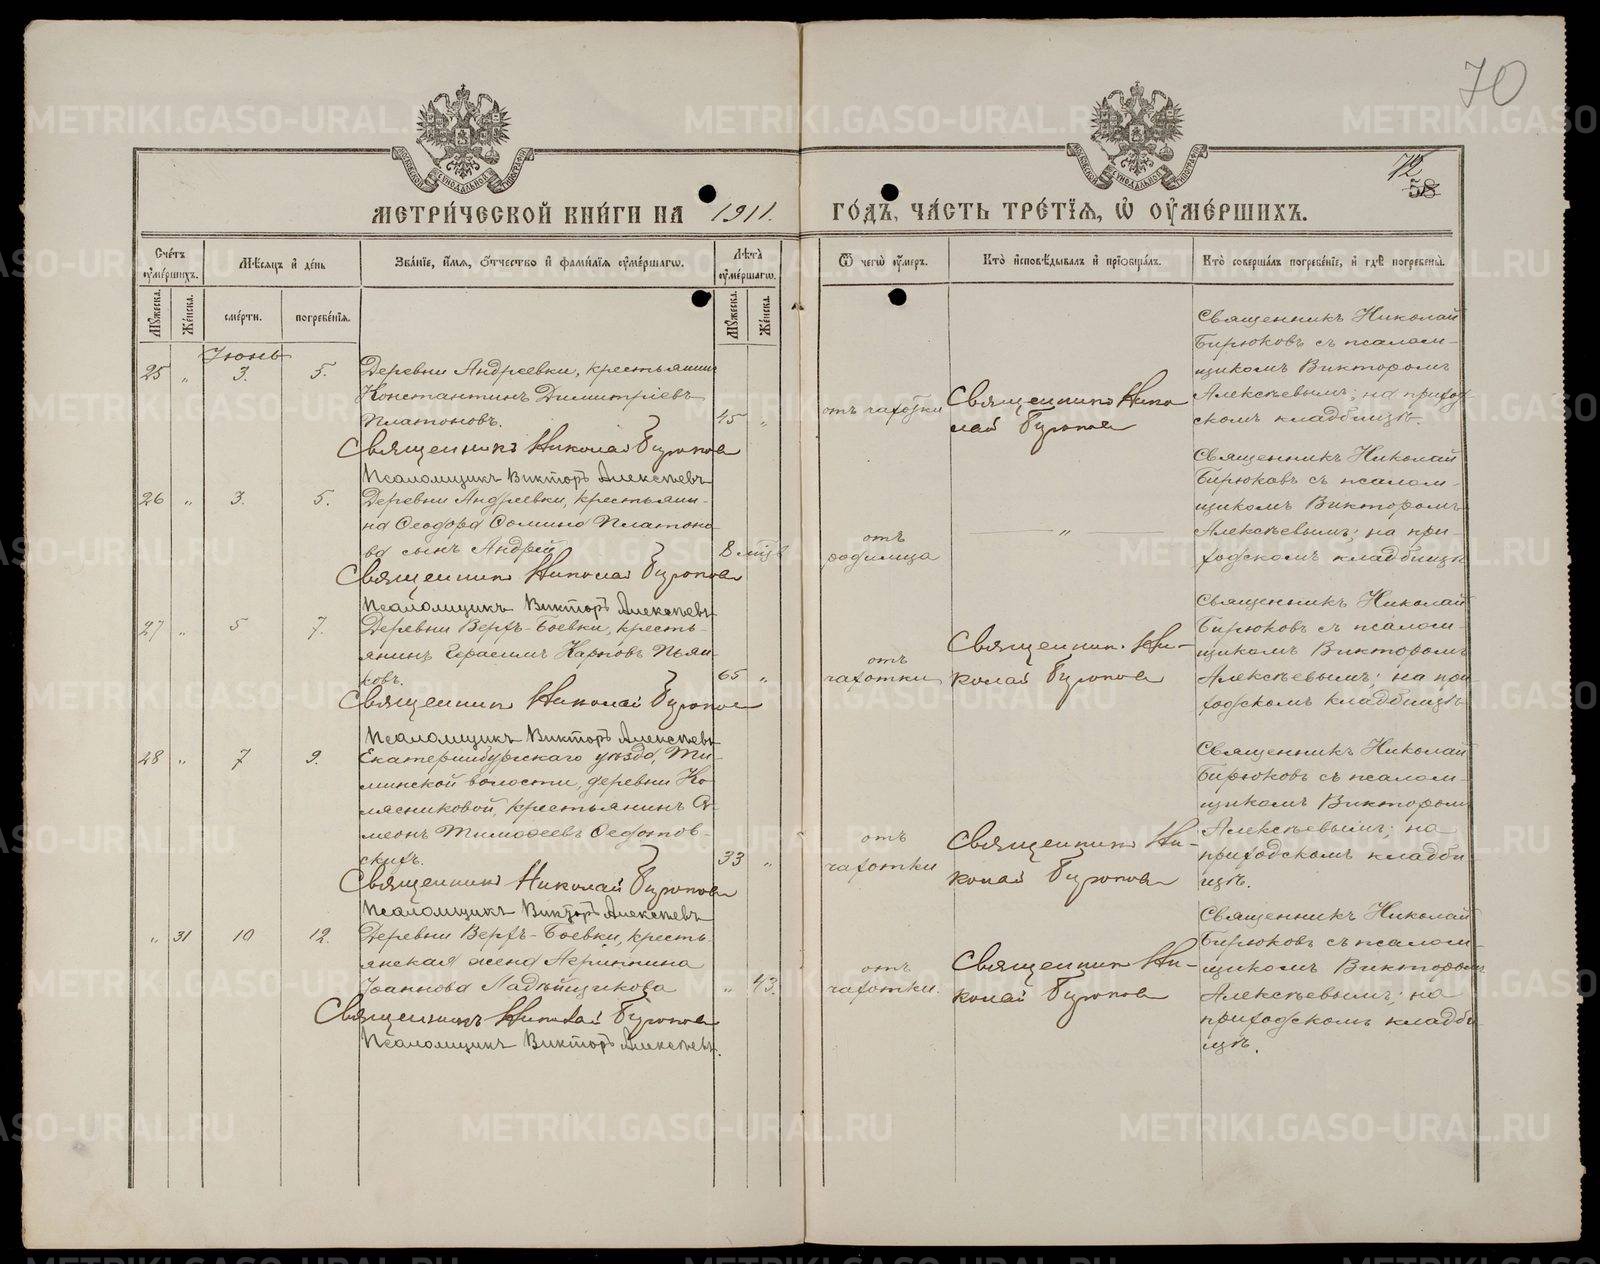 70
72
58
МОСКОВСКОЙ СѴНОДАЛЬНОЙ ТИПОГРАФІИ
МОСКОВСКОЙ СѴНОДАЛЬНОЙ ТИПОГРАФІИ
МЕТРИ́ЧЕСКОЙ КНИ́ГИ НА 1911. ГО́ДЪ, ЧА́СТЬ ТРЕ́ТЇѦ, Ѡ҆ ОУ҆МЕ́РШИХЪ.
Сче́тъ оу҆ме́ршихъ.
Мѣ́сѧцъ и҆ де́нь
Зва́нїе, и҆́мѧ, ѻ҆́тчество и҆ фами́лїѧ оу҆ме́ршагѡ.
Лѣ́та оу҆ме́ршагѡ.
Ѿ чегѡ̀ оу҆́меръ.
Кто̀ и҆сповѣ́дывалъ и҆ прїѡбща́лъ.
Кто̀ соверша́лъ погребе́нїе, и҆ гдѣ̀ погребены̀.
Мꙋ́жеска.
Же́нска.
сме́рти.
погребе́нїѧ.
Мꙋ́жеска.
Же́нска.
Іюнь
25 " 3. 5.
Деревни Андреевки, крестьянинъ
Константинъ Димитріевъ
Платоновъ. 45 "
Священникъ Николай Бирюковъ
Псаломщикъ Викторъ Алексѣевъ
отъ чахотки
Священникъ Нико-
лай Бирюковъ
Священникъ Николай
Бирюковъ съ псалом-
щикомъ Викторомъ
Алексѣевымъ; на приход-
скомъ кладбищѣ.
26 " 3. 5.
Деревни Андреевки, крестьяни-
на Ѳеодора Ѳомина Платоно-
ва сынъ Андрей 8 мѣц.
Священникъ Николай Бирюковъ
Псаломщикъ Викторъ Алексѣевъ
отъ
родимца
"
Священникъ Николай
Бирюковъ съ псалом-
щикомъ Викторомъ
Алексѣевымъ; на при-
ходскомъ кладбищѣ
27 " 5 7.
Деревни Верхъ-Боевки, кресть-
янинъ Герасимъ Карповъ Пьян-
ковъ. 65 "
Священникъ Николай Бирюковъ
Псаломщикъ Викторъ Алексѣевъ
отъ
чахотки
Священникъ Ни-
колай Бирюковъ
Священникъ Николай
Бирюковъ съ псалом-
щикомъ Викторомъ
Алексѣевымъ; на при
ходскомъ кладбищѣ
28 " 7 9.
Екатеринбургскаго уѣзда,
волости, деревни Ко-
лясниковой, крестьянинъ Си-
меонъ Тимофеевъ Ѳедотов-
скихъ. 33 "
Священникъ Николай Бирюковъ
Псаломщикъ Викторъ Алексѣевъ
отъ
чахотки
Священникъ Ни-
колай Бирюковъ
Священникъ Николай
Бирюковъ съ псалом-
щикомъ Викторомъ
Алексѣевымъ; на
приходскомъ кладби-
щѣ.
" 31 10 12.
Деревни Верхъ-Боевки, кресть-
янская жена Агриппина
Іоаннова Ладейщикова " 43.
Священникъ Николай Бирюковъ
Псаломщикъ Викторъ Алексѣевъ.
отъ
чахотки.
Священникъ Ни-
колай Бирюковъ
Священникъ Николай
Бирюковъ съ псалом-
щикомъ Викторомъ
Алексѣевымъ; на
приходскомъ кладби-
щѣ.
METRIKI.GASO-URAL.RU